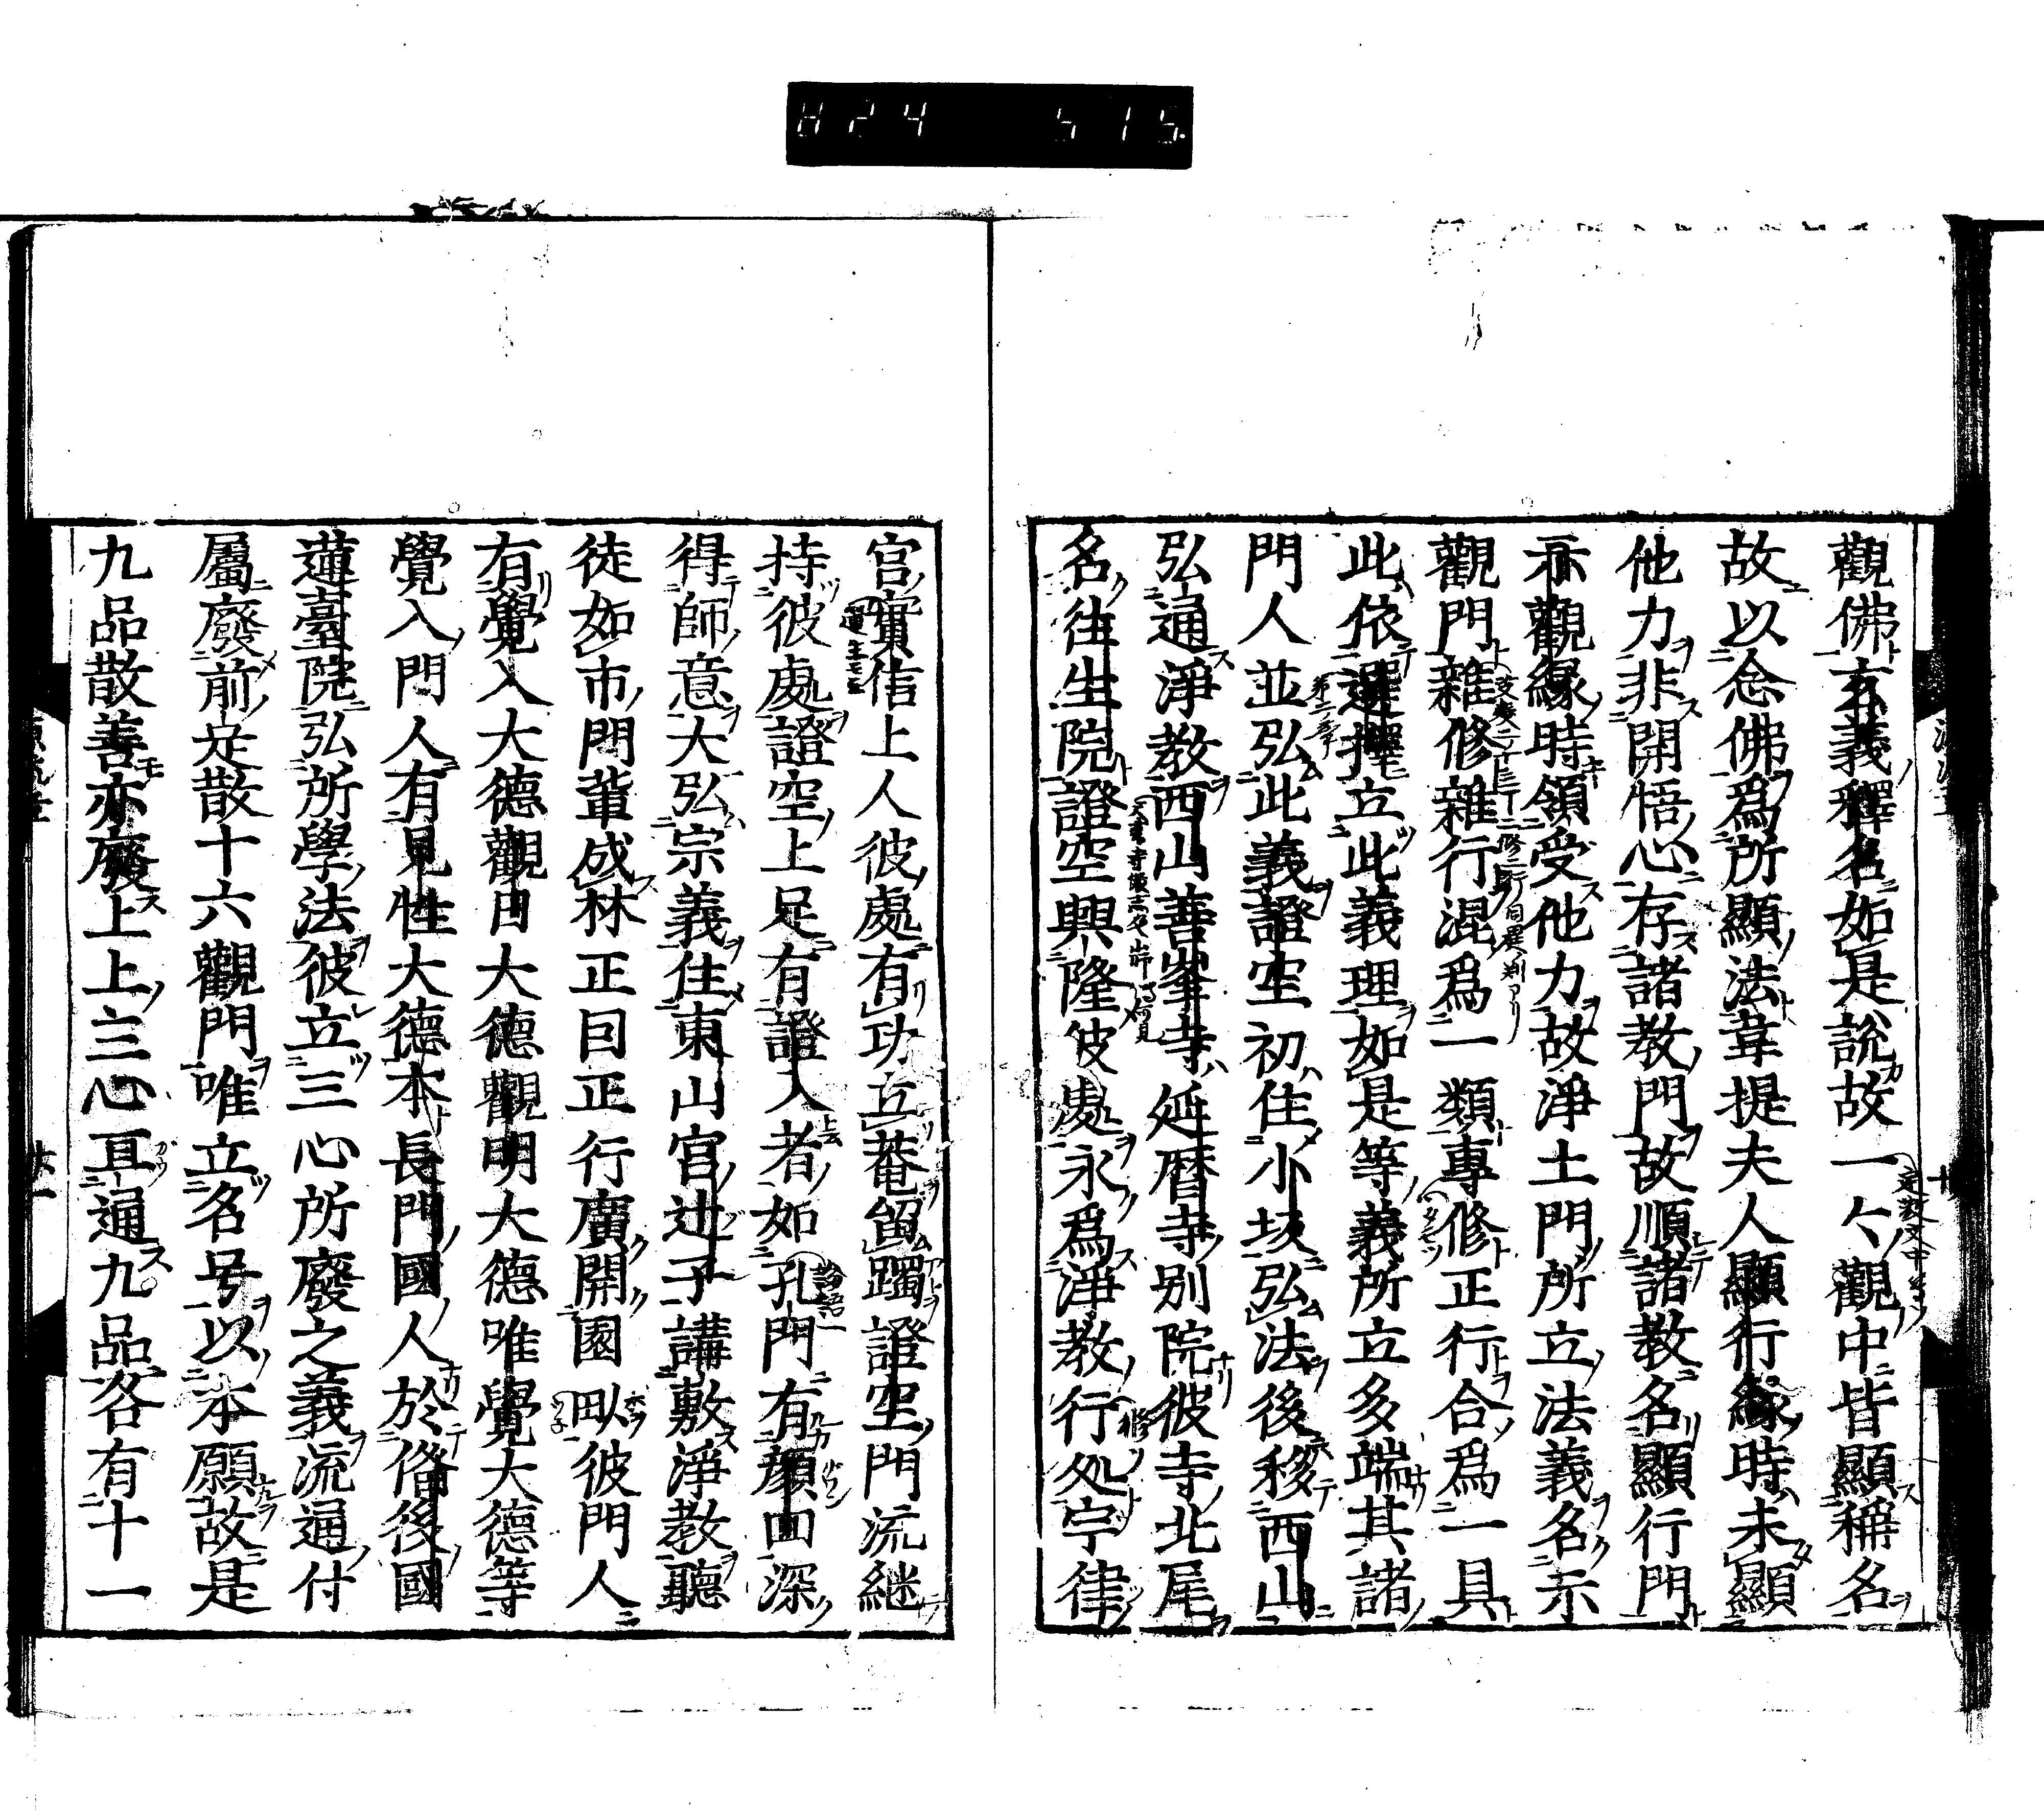 觀佛玄義釋名如是說故一々觀中皆顯稱名
故以念佛爲所顯法韋提夫人顯行緣時未顯
他力非開悟心存諸教門故順諸教名顯行門
示觀緣時領受他力故淨土門所立法義名示
觀門雜修雜行混爲一類專修正行合爲一具
此依選擇立此義理如是等義所立多端其諸
門人並弘此義證空初住小坂弘法後移西山
弘通淨教西山善峯寺延曆寺別院彼寺北尾
名往生院證空興隆彼處永爲淨教行処宇律
官實信上人彼處有功立菴留躅證空門流継
持彼處證空上足有證入者如孔門有顏回深
得師意大弘宗義住東山宮辻子講敷淨教聽
徒如市門葷成林正因正行廣開園畝彼門人
有覺入大德觀日大德觀明大德唯覺大德等
覺入門人有見性大德本長門國人於俻後國
蓮臺院弘所學法彼立三心所廢之義流通付
屬廢前定散十六觀門唯立名号以本願故是
九品散善亦廢上上三心亘通九品各有十一
H24 515